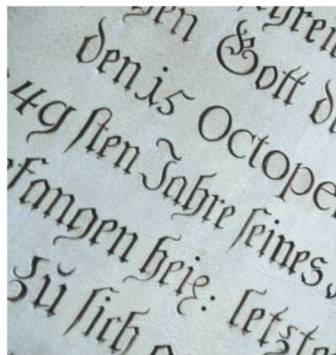 den Gott
den 15 Octope
49 sten Jahre seines
fangen heig: letzte
zu sich